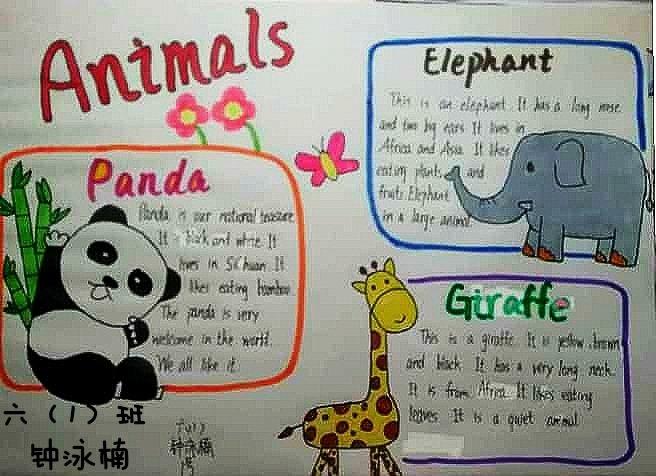 Animals
Panda
Panda is our national treasure
It is black and white. It
lives in SiChuan. It
likes eating bamboo.
The panda is very
welcome in the world.
We all like it.
Elephant
This is an elephant. It has a long nose
and two big ears. It lives in
Africa and Asia. It likes
eating plants and
fruits. Elephant
in a large animal.
Giraffe
This is a giraffe. It is yellow, brown
and black. It has a very long neck.
It is from Africa. It likes eating
leaves. It is a quiet animal.
六（1）班
钟泳楠
六(1)
钟泳楠